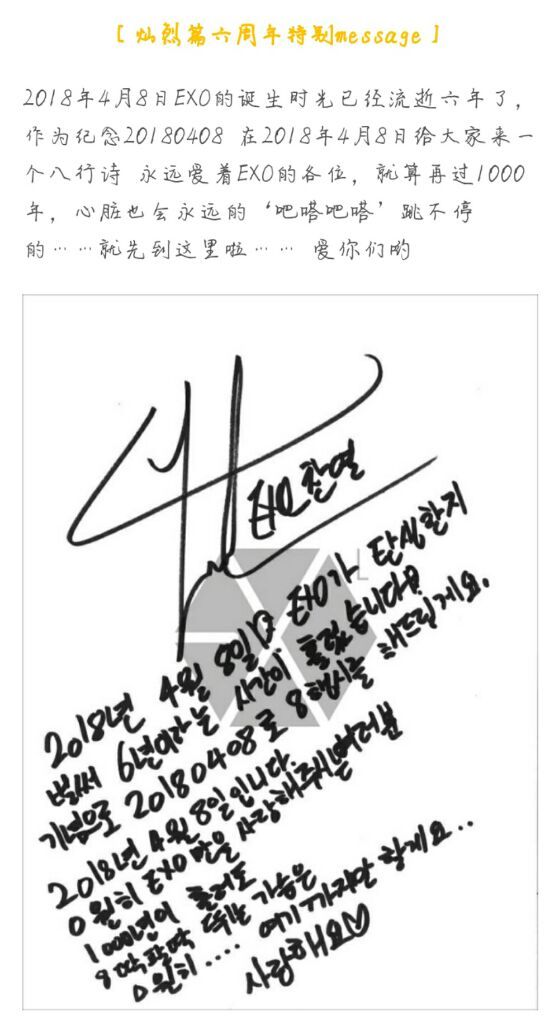 [ 灿烈篇六周年特别message ]
2018年4月8日EXO的诞生时光已经流逝六年了，
作为纪念20180408 在2018年4月8日给大家来一
个八行诗 永远爱着EXO的各位，就算再过1000
年，心脏也会永远的‘吧嗒吧嗒’跳不停
的……就先到这里啦…… 爱你们哟
EXO 찬열
L
2018년 4월 8일은 EXO가 탄생한지
벌써 6년이라는 시간이 흘렀습니다!
기념으로 20180408로 8행시를 해드릴게요.
2018년 4월 8일입니다
0원히 EXO만을 사랑해주시는 여러분
1000년이 흘러도
8딱팔딱 뛰는 가슴은
0원히.... 여기까지만 할게요..
사랑해요♡